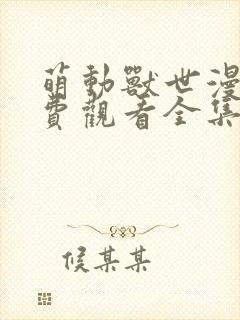 萌動獸世漫
費觀看全集
候某某